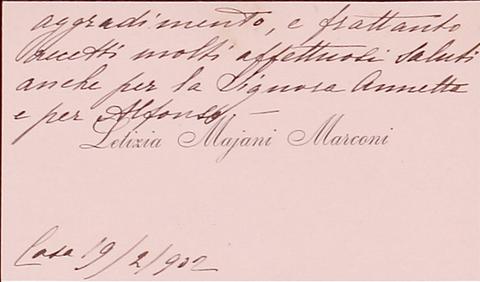 aggradimento, e frattanto
accetti molti affettuosi saluti
anche per la Signora Annetta
e per Alfonso —
Letizia Majani Marconi
Casa 19/2/902